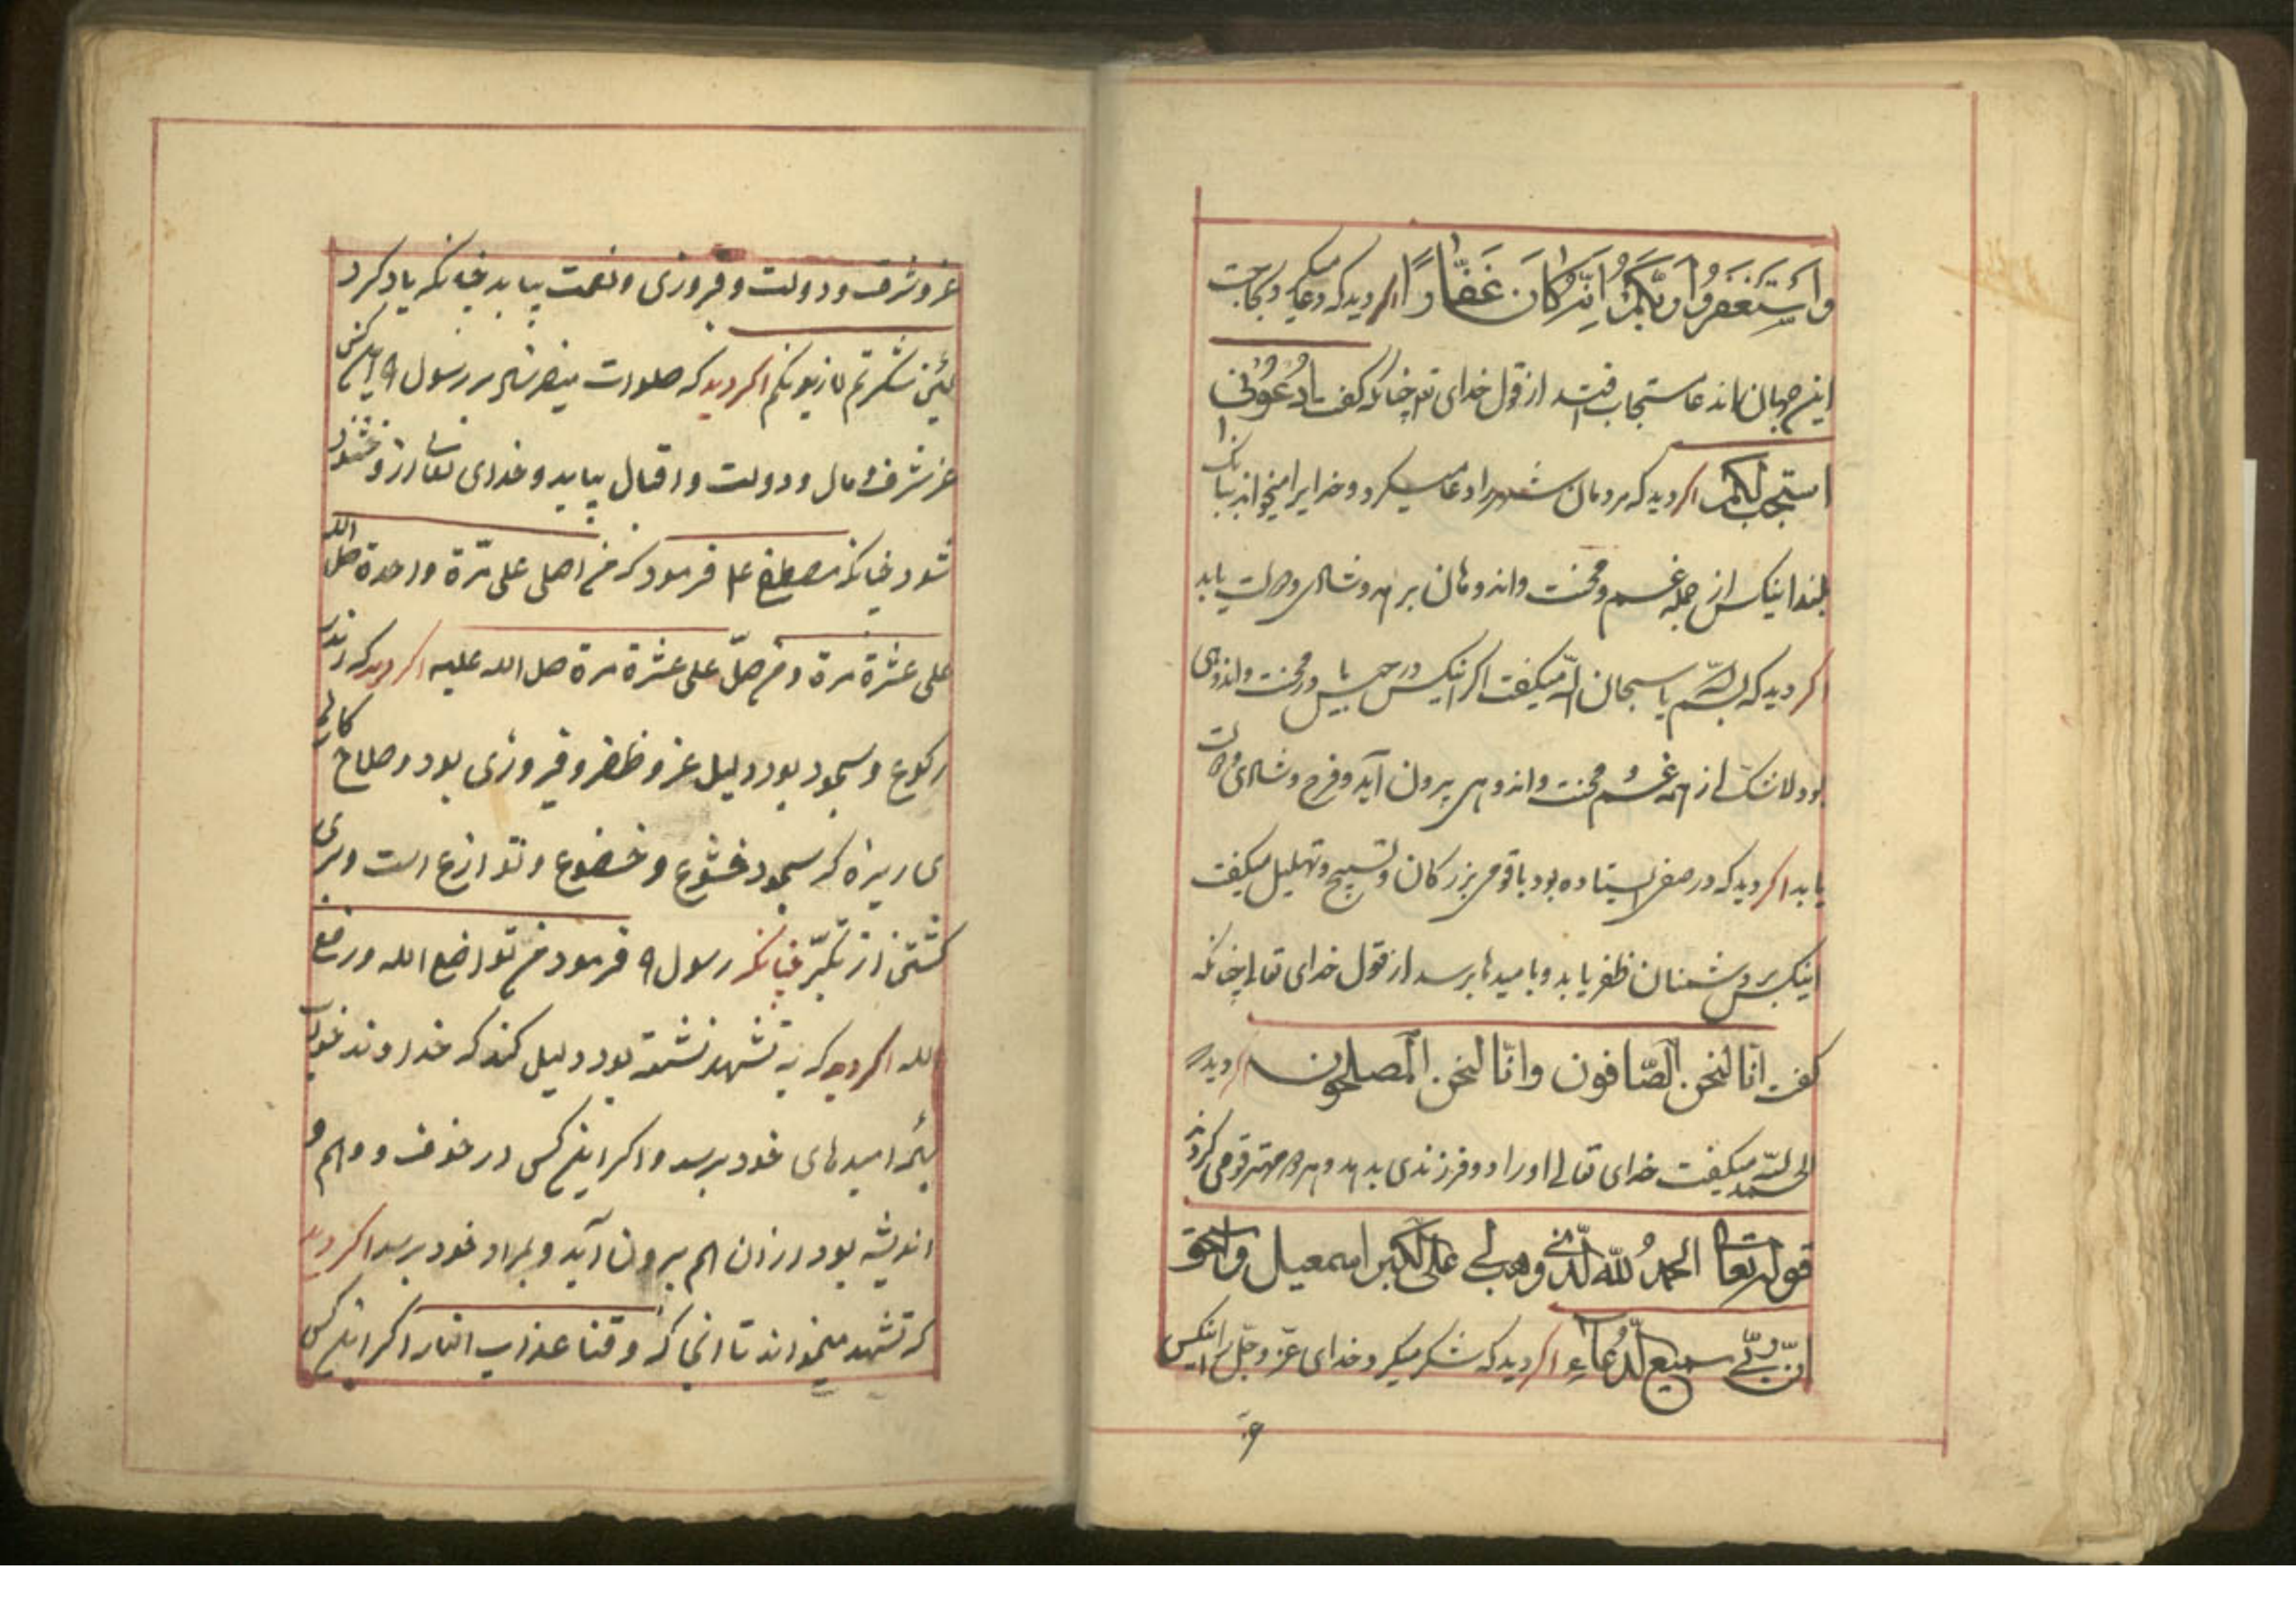 واستغفروا ربکم انه کان غفارا اکر دید که دعا میکرد و حاجت
اینجهان دعا مستجابست از قول خدای تع چنانکه گفت ادعونی
استجب لکم اکر دید که مردمان شهر را دعا میکرد و خدایرا میخواند ببانک
بلند اینکس از جمله غم و محنت و اندوهان برهد و شادی و دولت یابد
اکر دید که بسم الله یا سبحان الله میکفت اکر اینکس در حبس یا در محنت و اندوهی
بود لاشک از همه غم و محنت و اندوهی بیرون آید و فرح و شادی و دولت
یابد اکر دید که در صفی ایستاده بود با قومی بزرکان و تسبیح و تهلیل میکفت
اینکس بر دشمنان ظفر یابد و بامیدها برسد از قول خدای تعالی چنانکه
کفت انا لنحن الصافون وانا لنحن المصلحون اکر دید که
الحمد لله میکفت خدای تعالی او را دو فرزندی بدهد و هر دو مهتر قومی کردند
قوله تعالی الحمد لله الذی وهب لی علی الکبر اسمعیل واسحق
ان ربی لسمیع الدعاء اکر دید که شکر میکرد خدای عز و جل را اینکس
عز و شرف و دولت و فیروزی و نعمت بیابد چنانکه یاد کرد
لئن شکرتم لازیدنکم اکر دید که صلوات میفرستاد بر رسول اینکس
عز شرف و مال و دولت و اقبال بیابد و خدای تعالی ازو خشنود
شود چنانکه مصطفی علم فرمود که من اصلی علی مرة واحدة صلی الله
علی عشرة مرة ومن صل علی عشرة مرة صل الله علیه اکر دید که اندر
رکوع و سجود بود دلیل عز و ظفر و فیروزی بود و صلاح کارهای
که سجود خشوع و خضوع و تواضع است و بری
کشتن از تکبر چنانکه رسول فرمود من تواضع الله ورفع
الله اکر دید که به تشهد نشسته بود دلیل کند که خداوند خواب
بهمه امیدهای خود برسد و اکر اینکس در خوف و والم و
اندیشه بود از ان الم بیرون آید و بمراد خود برسد اکر دید
که تشهد میخواند تا انجا که وقنا عذاب النار اکر اینکس